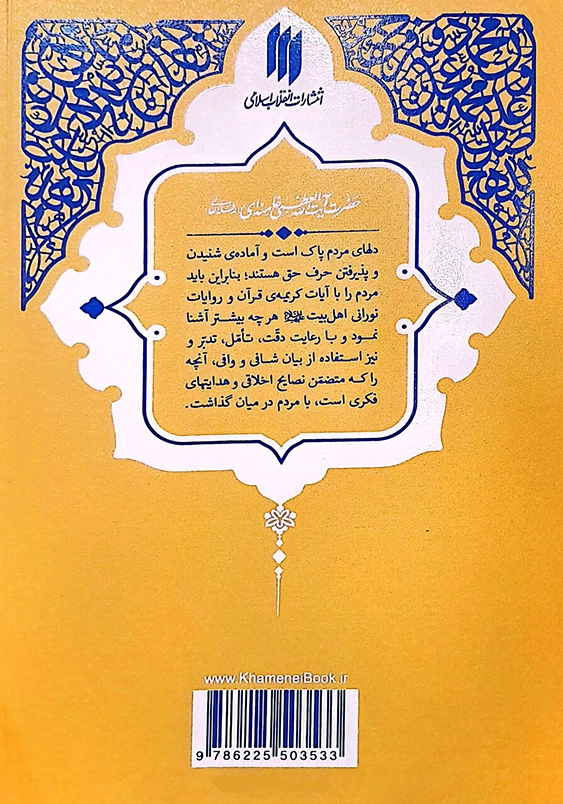 انتشارات انقلاب اسلامی
حضرت آیت‌الله العظمی خامنه‌ای
دلهای مردم پاک است و آماده‌ی شنیدن
و پذیرفتن حرف حق هستند؛ بنابراین باید
مردم را با آیات کریمه‌ی قرآن و روایات
نورانی اهل‌بیت هر چه بیشتر آشنا
نمود و با رعایت دقّت، تأمّل، تدبّر و
نیز استفاده از بیان شافی و وافی، آنچه
را که متضمّن نصایح اخلاقی و هدایتهای
فکری است، با مردم در میان گذاشت.
www.KhameneiBook.ir
9 786225 503533